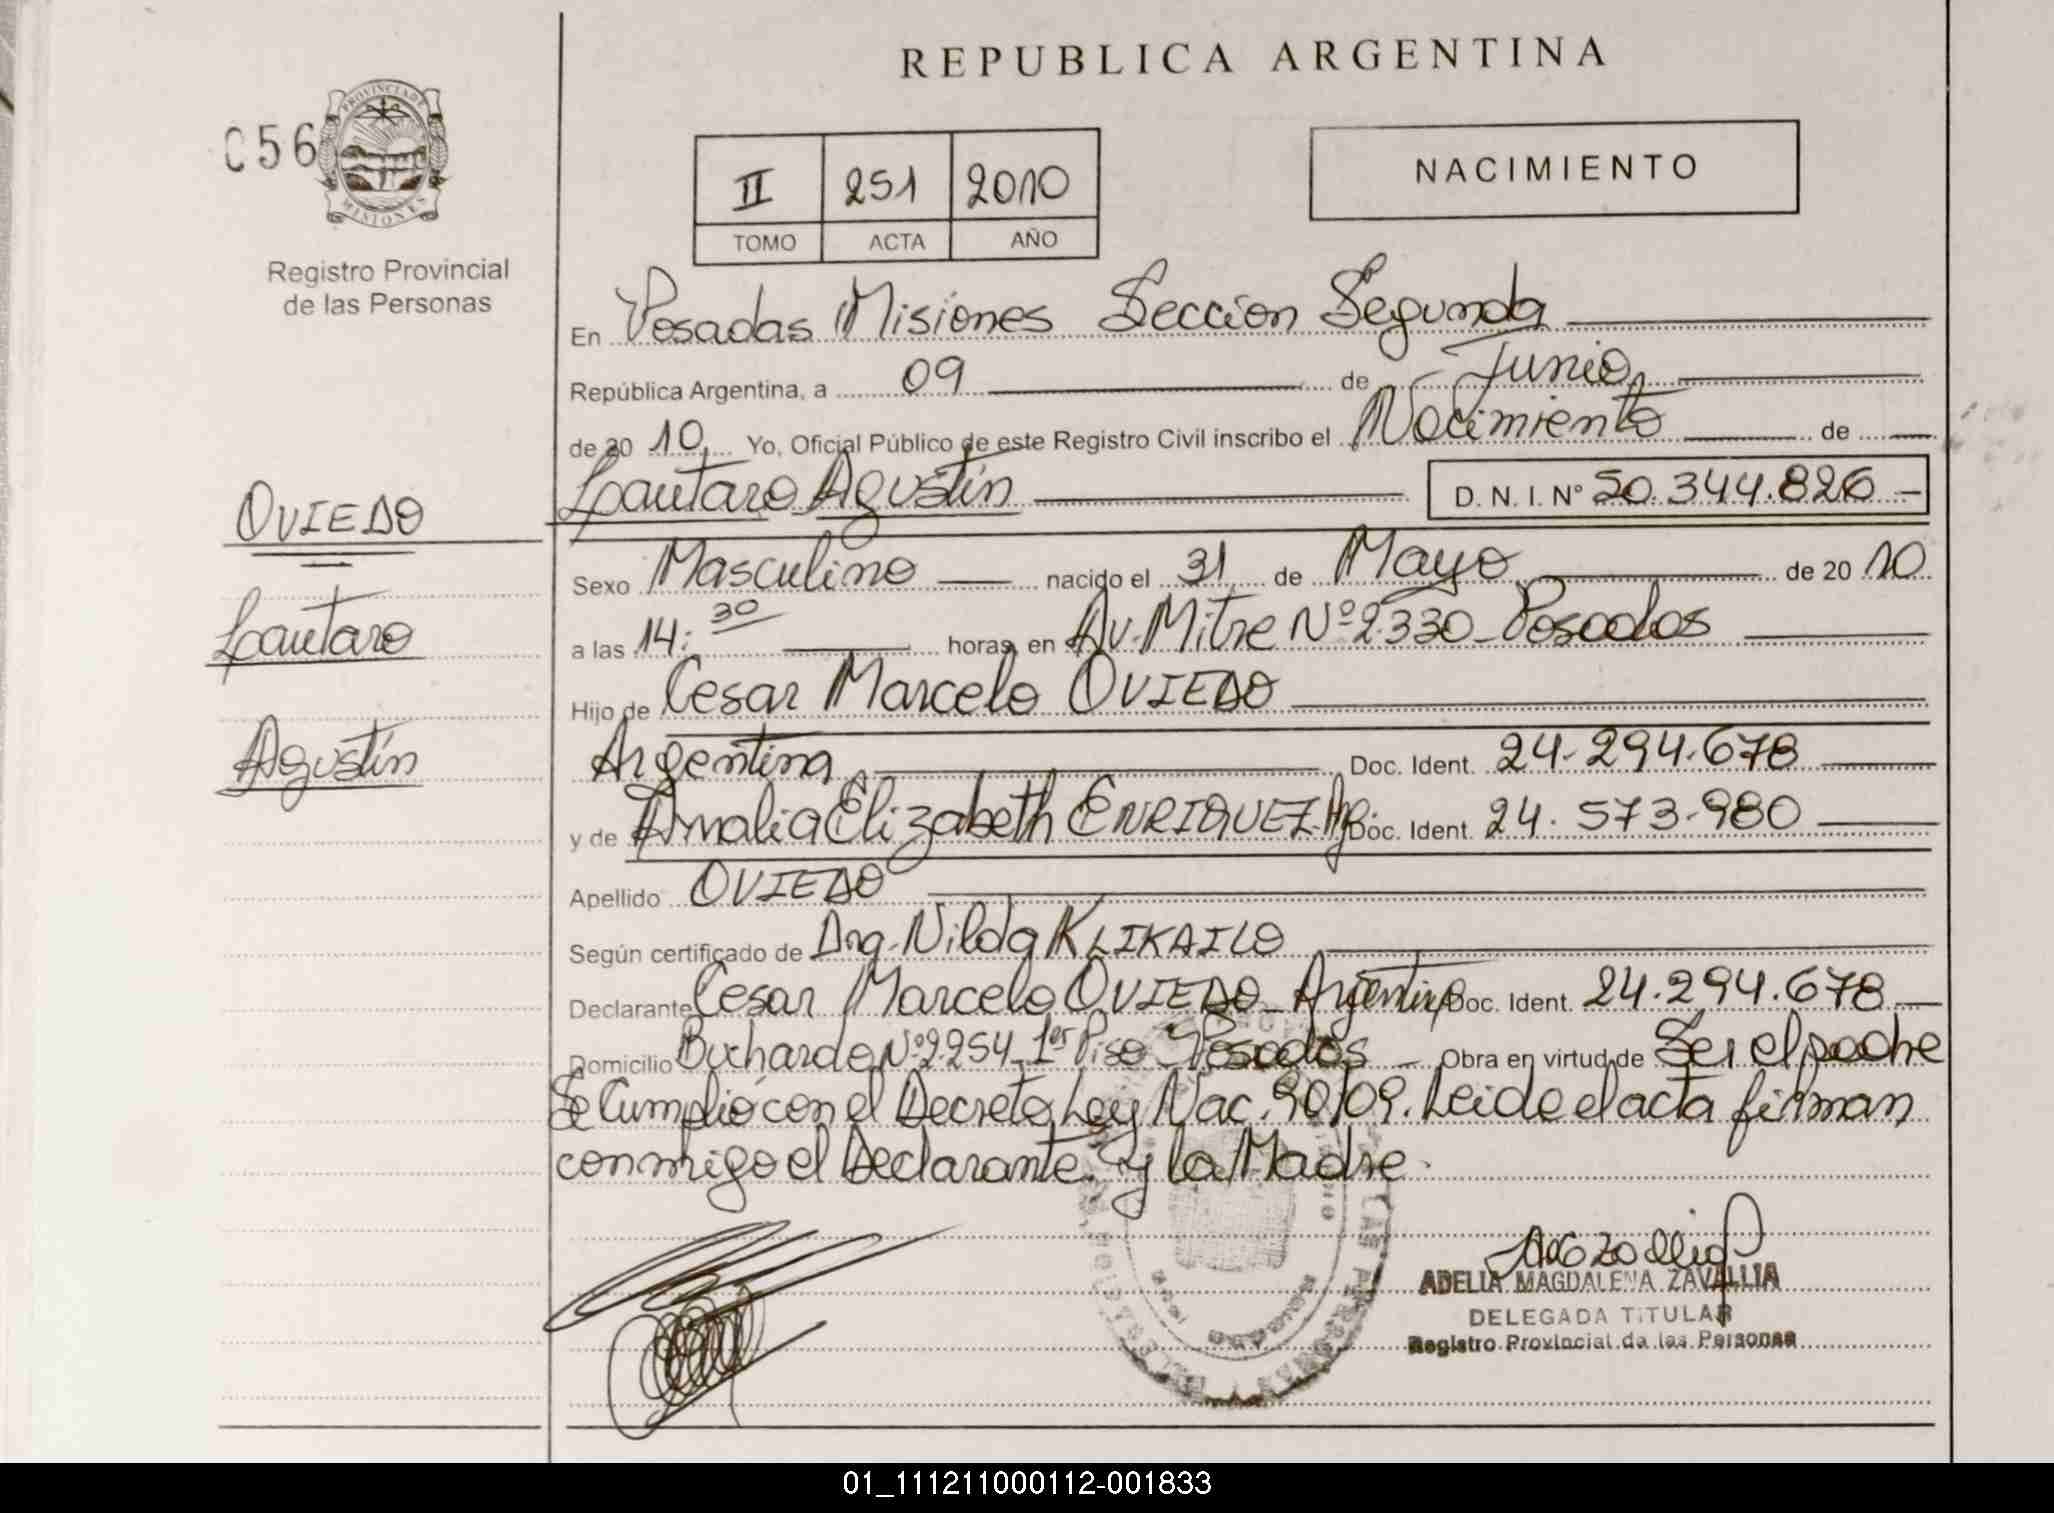 REPUBLICA ARGENTINA
C56
PROVINCIA DE
MISIONES
Registro Provincial
de las Personas
II 251 2010
TOMO ACTA AÑO
NACIMIENTO
En Posadas Misiones Seccion Segunda
República Argentina, a 09 de Junio
de 20 10 Yo, Oficial Público de este Registro Civil inscribo el Nacimiento de
Lautaro Agustín D. N. I. Nº 50.344.826
OVIEDO
Lautaro
Agustín
Sexo Masculino nacido el 31 de Mayo de 20 10
a las 14:30 horas, en Av. Mitre Nº 2330 Posadas
Hijo de Cesar Marcelo OVIEDO
Argentina Doc. Ident. 24.294.678
y de Amalia Elizabeth ENRIQUEZ Doc. Ident. 24.573.980
Apellido OVIEDO
Según certificado de Dra. Nilda KLIKAILO
Declarante Cesar Marcelo OVIEDO Argentina Doc. Ident. 24.294.678
Domicilio Buchardo Nº 2254 1er Piso Posadas Obra en virtud de Ser el padre
Se Cumplió con el Decreto Ley Nac. 90/09. Leida el acta firman
conmigo el Declarante y la Madre.
ADELIA MAGDALENA ZAVALLIA
DELEGADA TITULAR
Registro Provincial de las Personas
01_111211000112-001833